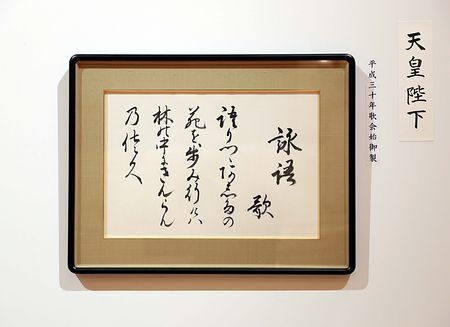 天皇陛下
平成三十年歌会始御製
詠語
歌
語りつゝあしたの
苑を歩み行けハ
林の中にきんらん
乃